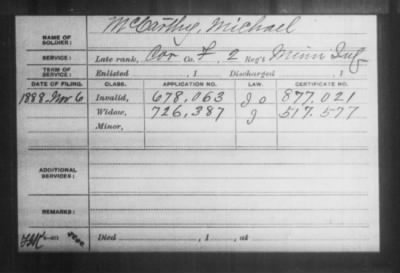 NAME OF SOLDIER: McCarthy, Michael
SERVICE: Late rank, Cor Co. F, 2 Reg't Minn Inf
TERM OF SERVICE: Enlisted , 1 Discharged , 1
DATE OF FILING. CLASS. APPLICATION NO. LAW. CERTIFICATE NO.
1888, Nov 6 Invalid, 678,063 877,021
Widow, 726,387 g 517,577
Minor,
ADDITIONAL SERVICES:
REMARKS:
Died , 1 , at